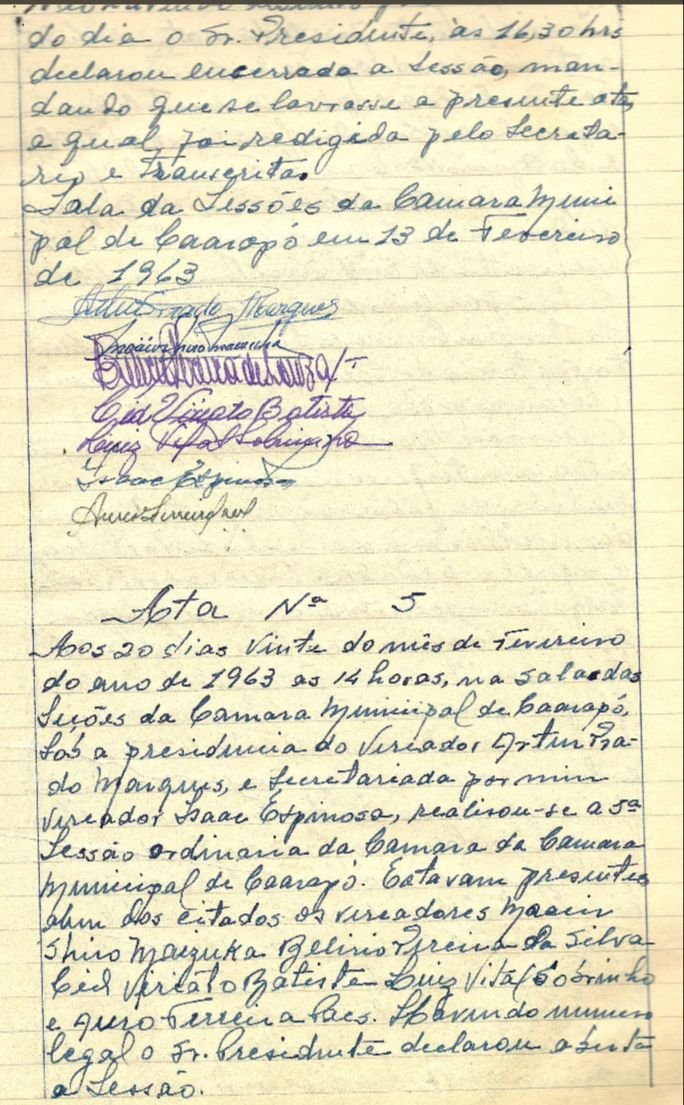 do dia o Sr. Presidente, às 16,30 hrs
declarou encerrada a Sessão, man-
dando que se lavrasse a presente ata,
a qual, foi redigida pelo Secreta-
rio e transcrita.
Sala da Sessões da Camara Muni
pal de Caarapó em 13 de Fevereiro
de 1963
Prado Marques
Cid Viriato Batista
Luiz Vital Sobrinho
Isaac Espinosa
Ata Nª 5
Aos 20 dias vinte do mês de Fevereiro
do ano de 1963 as 14 horas, na Sala das
Seções da Camara Municipal de Caarapó,
Sób a presidencia do Vereador Artur Pra-
do Marques, e Secretariada por mim
vereador Isaac Espinosa, realisou-se a 5ª
Sessão ordinaria da Camara da Camara
Municipal de Caarapó. Estavam presentes
alem dos citados os vereadores Moacir
Shiro Maezuka Belirio Pereira da Silva
Cid Viriato Batista Luiz Vital Sobrinho
e Auro Ferreira Paes. Havendo numero
legal o Sr. Presidente declarou aberta
a Sessão.